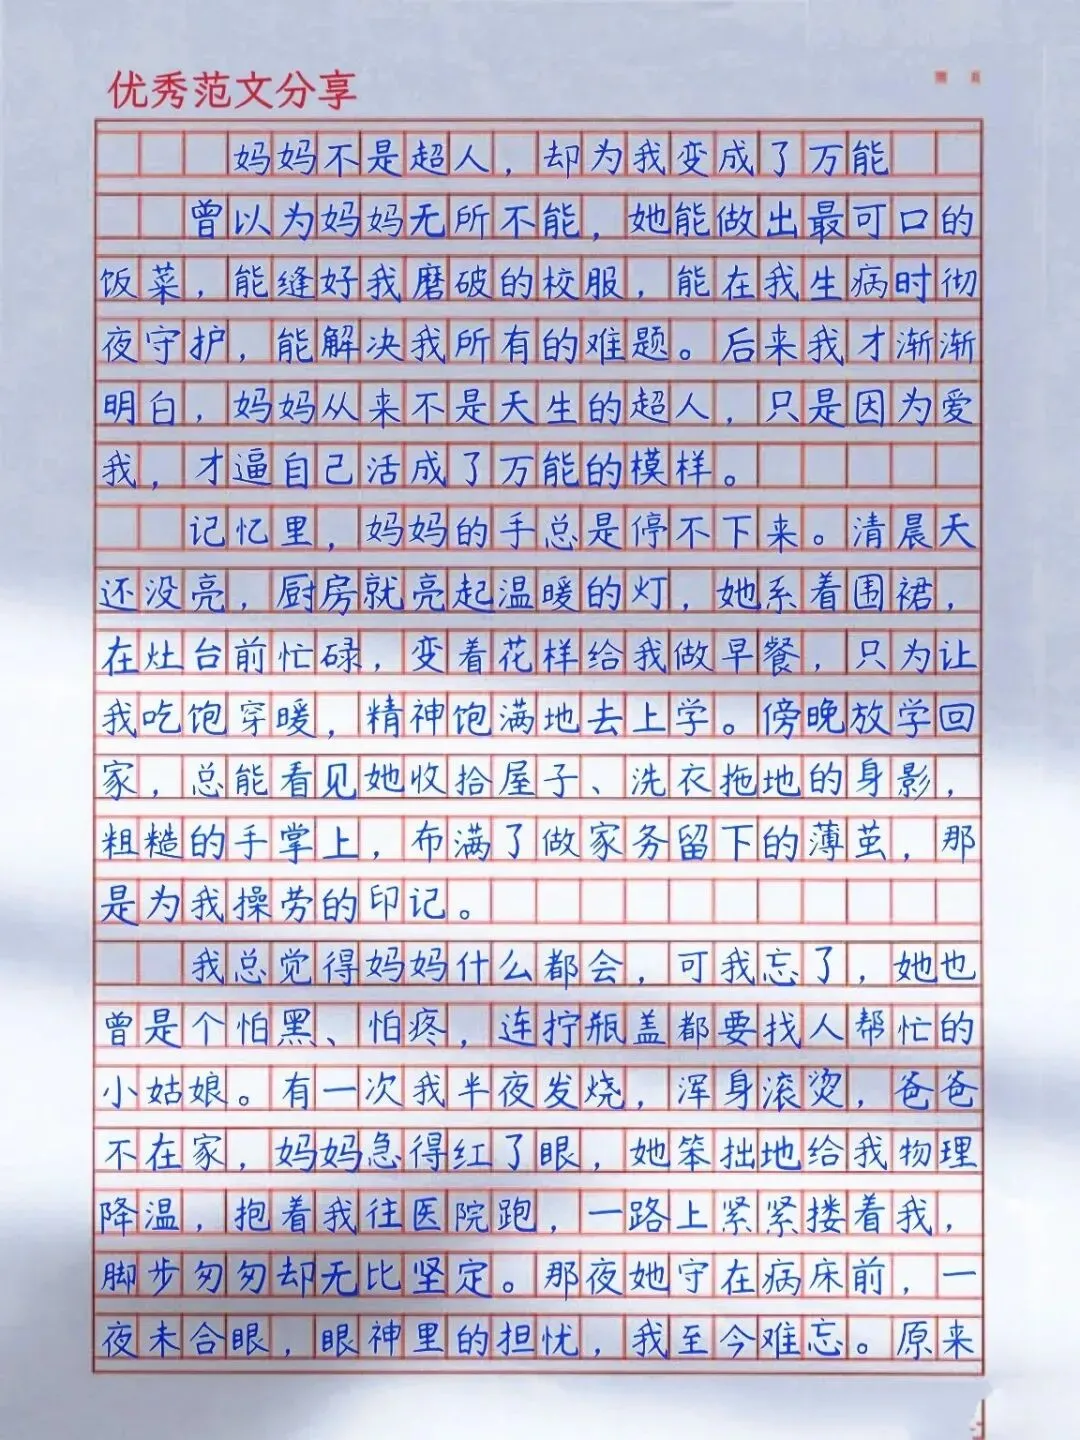 优秀范文分享
妈妈不是超人，却为我变成了万能
曾以为妈妈无所不能，她能做出最可口的
饭菜，能缝好我磨破的校服，能在我生病时彻
夜守护，能解决我所有的难题。后来我才渐渐
明白，妈妈从来不是天生的超人，只是因为爱
我，才逼自己活成了万能的模样。
记忆里，妈妈的手总是停不下来。清晨天
还没亮，厨房就亮起温暖的灯，她系着围裙，
在灶台前忙碌，变着花样给我做早餐，只为让
我吃饱穿暖，精神饱满地去上学。傍晚放学回
家，总能看见她收拾屋子、洗衣拖地的身影，
粗糙的手掌上，布满了做家务留下的薄茧，那
是为我操劳的印记。
我总觉得妈妈什么都会，可我忘了，她也
曾是个怕黑、怕疼，连拧瓶盖都要找人帮忙的
小姑娘。有一次我半夜发烧，浑身滚烫，爸爸
不在家，妈妈急得红了眼，她笨拙地给我物理
降温，抱着我往医院跑，一路上紧紧搂着我，
脚步匆匆却无比坚定。那夜她守在病床前，一
夜未合眼，眼神里的担忧，我至今难忘。原来